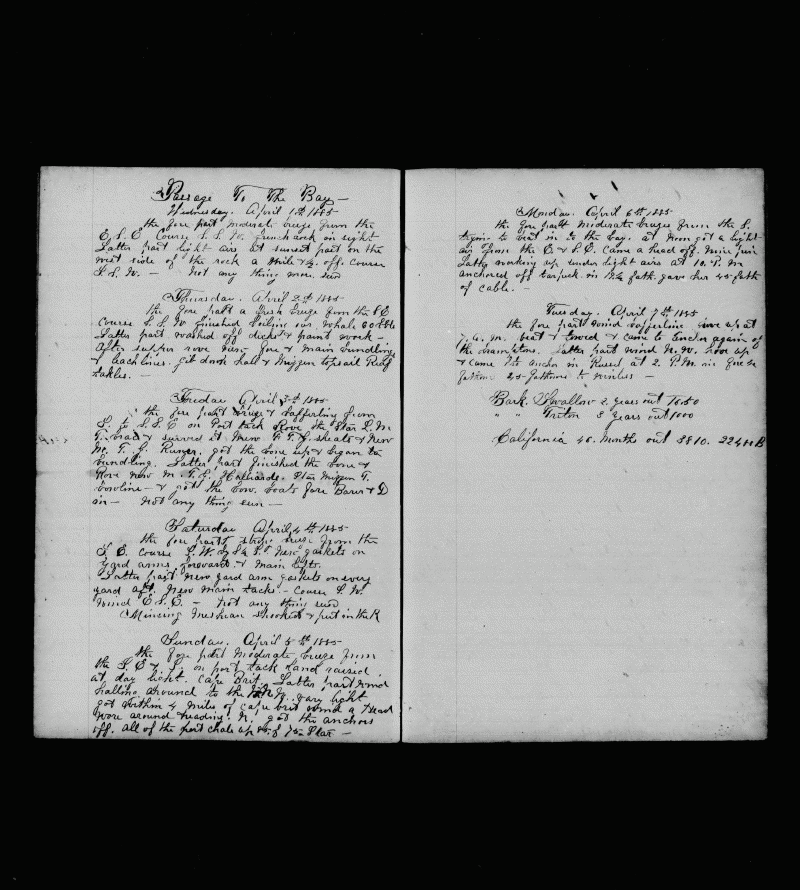 Passage To The Bay —
Wednesday. April 1st 1885
the fore part moderate breeze from the
E.S.E. Course S.S.W. french rock in sight
Latter part light airs at sunset part on the
west side of the rock a mile & ½ off. course
S.S.W. — Not any thing more seen
Thursday. April 2d 1885
the fore part a fresh breeze from the S E
Course S.S.W. finished boiling our. whale 60 bbls
Latter part washed off decks & paint work —
After supper rove new. fore & main bundling
& leachlines. got down half & Mizzen topsail Reef
tackles. —
Friday April 3d 1885
the fore part breeze & baffling from
S. to S.S.E on Port tack Rove the Star S. M
T. brace & served it. New P. T. G. sheets & New
M. T. G. Runer. got the bone up & began to
bundling. Latter part finished the bone &
Rove new M. T. G. Halliards. Star Mizzen T.
bowline — & got the bow. boats fore Bower &
in — not any thing seen —
Saturday April 4th 1885
the fore part strong breeze from the
S. E. Course S.W. by S & S. New gaskets on
yard arms forward & main lifts.
Latter part new yard arm gaskets on every
yard aft. New main tacks. — Course S. W.
Wind E.S.E. — not any thing seen
Sunday. April 5th 1885
the fore part Moderate breeze from
the S. E & S. on port tack land raised
at day light. Cape Brit. Latter part wind
halling around to the N. vary light
got within 4 miles of cape brit wind a head
wore around heading N. got the anchors
off. all of the port chain up & 75 Star —
Monday. April 6th 1885
the fore part moderate breeze from the S.
trying to beat in to the bay. at Noon got a light
air from the E & S.E. came a head off. Nine pin
Latter working up under light airs at 10. P. M
anchored off tarpuck in fath. gave her 45 fath
of cable. —
Tuesday. April 7th 1885
the fore part wind baffling hove up at
7. A. M. beat & towed & came to under again off
the bramptons. Latter part wind N. W. hove up
& came to anchor in Russel at 2 P.M. in five
fathoms 25 fathoms to windlas —
Bark. Swallow 2. years out 1650
" " Triton 3 years out 1000
California 40. months out 2810. 2240 B